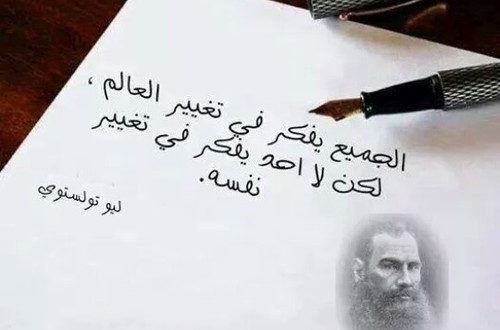 الجميع يفكر في تغيير العالم ،
لكن لا احد يفكر في تغيير
نفسه.
ليو تولستوي